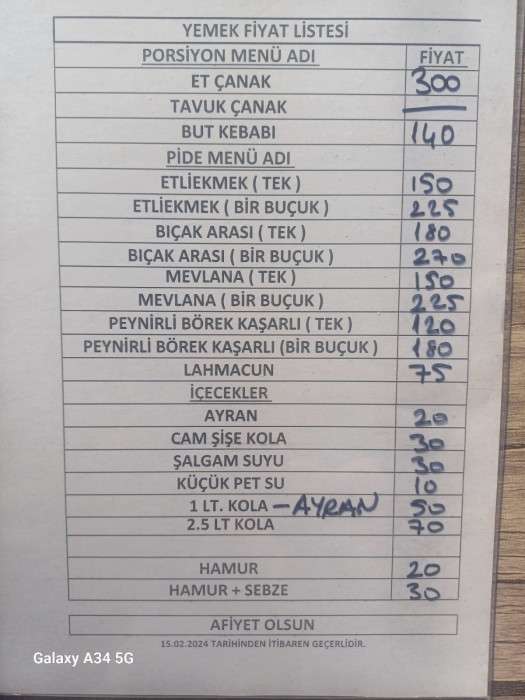 YEMEK FİYAT LİSTESİ
PORSİYON MENÜ ADI FİYAT
ET ÇANAK 300
TAVUK ÇANAK —
BUT KEBABI 140
PİDE MENÜ ADI
ETLİEKMEK ( TEK ) 150
ETLİEKMEK ( BİR BUÇUK ) 225
BIÇAK ARASI ( TEK ) 180
BIÇAK ARASI ( BİR BUÇUK ) 270
MEVLANA ( TEK ) 150
MEVLANA ( BİR BUÇUK ) 225
PEYNİRLİ BÖREK KAŞARLI ( TEK ) 120
PEYNİRLİ BÖREK KAŞARLI (BİR BUÇUK ) 180
LAHMACUN 75
İÇECEKLER
AYRAN 20
CAM ŞİŞE KOLA 30
ŞALGAM SUYU 30
KÜÇÜK PET SU 10
1 LT. KOLA – AYRAN 50
2.5 LT KOLA 70
HAMUR 20
HAMUR + SEBZE 30
AFİYET OLSUN
15.02.2024 TARİHİNDEN İTİBAREN GEÇERLİDİR.
Galaxy A34 5G